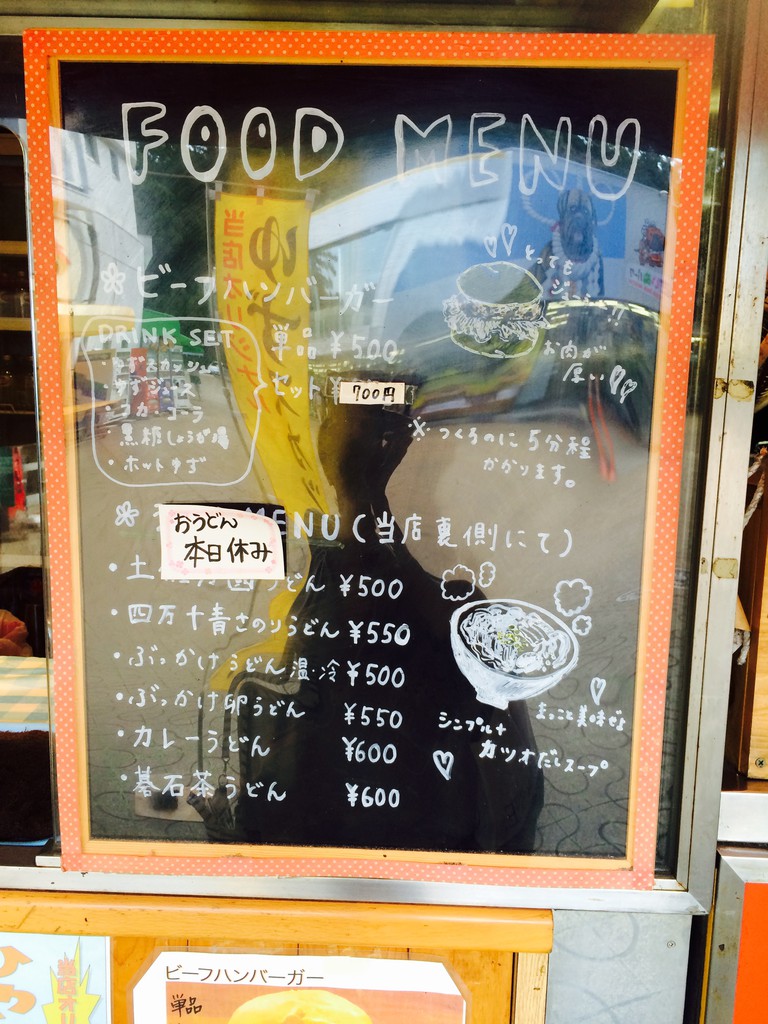 FOOD MENU
ビーフハンバーガー
とっても
お肉が
厚い
DRINK SET
単品 ¥500
セット ¥
700円
・コカ・コーラ
・黒糖しょうが湯
・ホットゆず
※つくるのに5分程
かかります。
おうどん
本日休み
MENU(当店裏側にて)
・土 うどん ¥500
・四万十青さのりうどん ¥550
・ぶっかけうどん 温・冷 ¥500
・ぶっかけ卵うどん ¥550
・カレーうどん ¥600
・碁石茶うどん ¥600
まっこと美味ぜよ
シンプル+
カツオだしスープ
当店オリジナル
ゆず
ビーフハンバーガー
単品
当店オリ